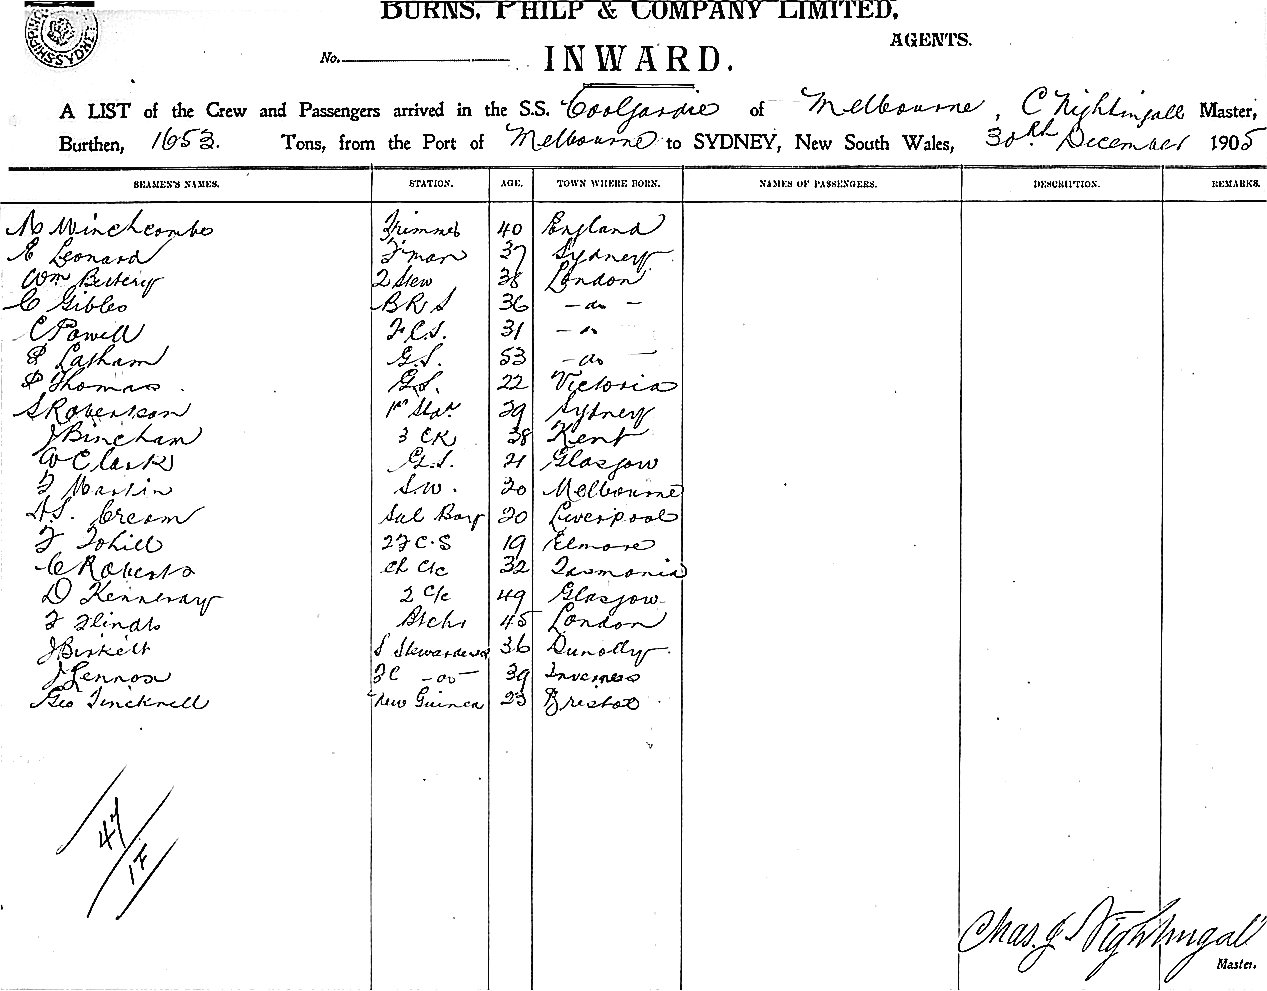 BURNS, PHILP & COMPANY LIMITED,
AGENTS.
No.
INWARD.
A LIST of the Crew and Passengers arrived in the S.S. Coolgardie of Melbourne, C Nightingall Master,
Burthen, 1653. Tons, from the Port of Melbourne to SYDNEY, New South Wales, 30th December 1905
SEAMEN'S NAMES. STATION. AGE. TOWN WHERE BORN. NAMES OF PASSENGERS. DESCRIPTION. REMARKS.
Winchcombe Trimmer 40 England
E Leonard F'man 37 Sydney
Wm 2 Stew 38 London
C Gibbs B R S 36 - do -
C Powell F.C.S. 31 - do
Latham G.S. 53 - do -
P Thomas G.S. 22 Victoria
S Robertson 1st 29 Sydney
J Bincham 3 CK 38 Kent
W Clark G.S. 21 Glasgow
F Martin S.W. 20 Melbourne
H.S. Cream Sal Boy 20 Liverpool
F Tohill 2 F C.S 19 Elmore
C Roberts Ch C/c 32 Tasmania
D Kenneray 2 C/c 49 Glasgow
F Flinds Btchr 45 London
J Birkett S Stewardess 36 Dunolly
J Lennox FC -do- 39 Inverness
Geo Tincknell New Guinea 23 Bristol
47/
17
Chas. J Nightingall
Master.